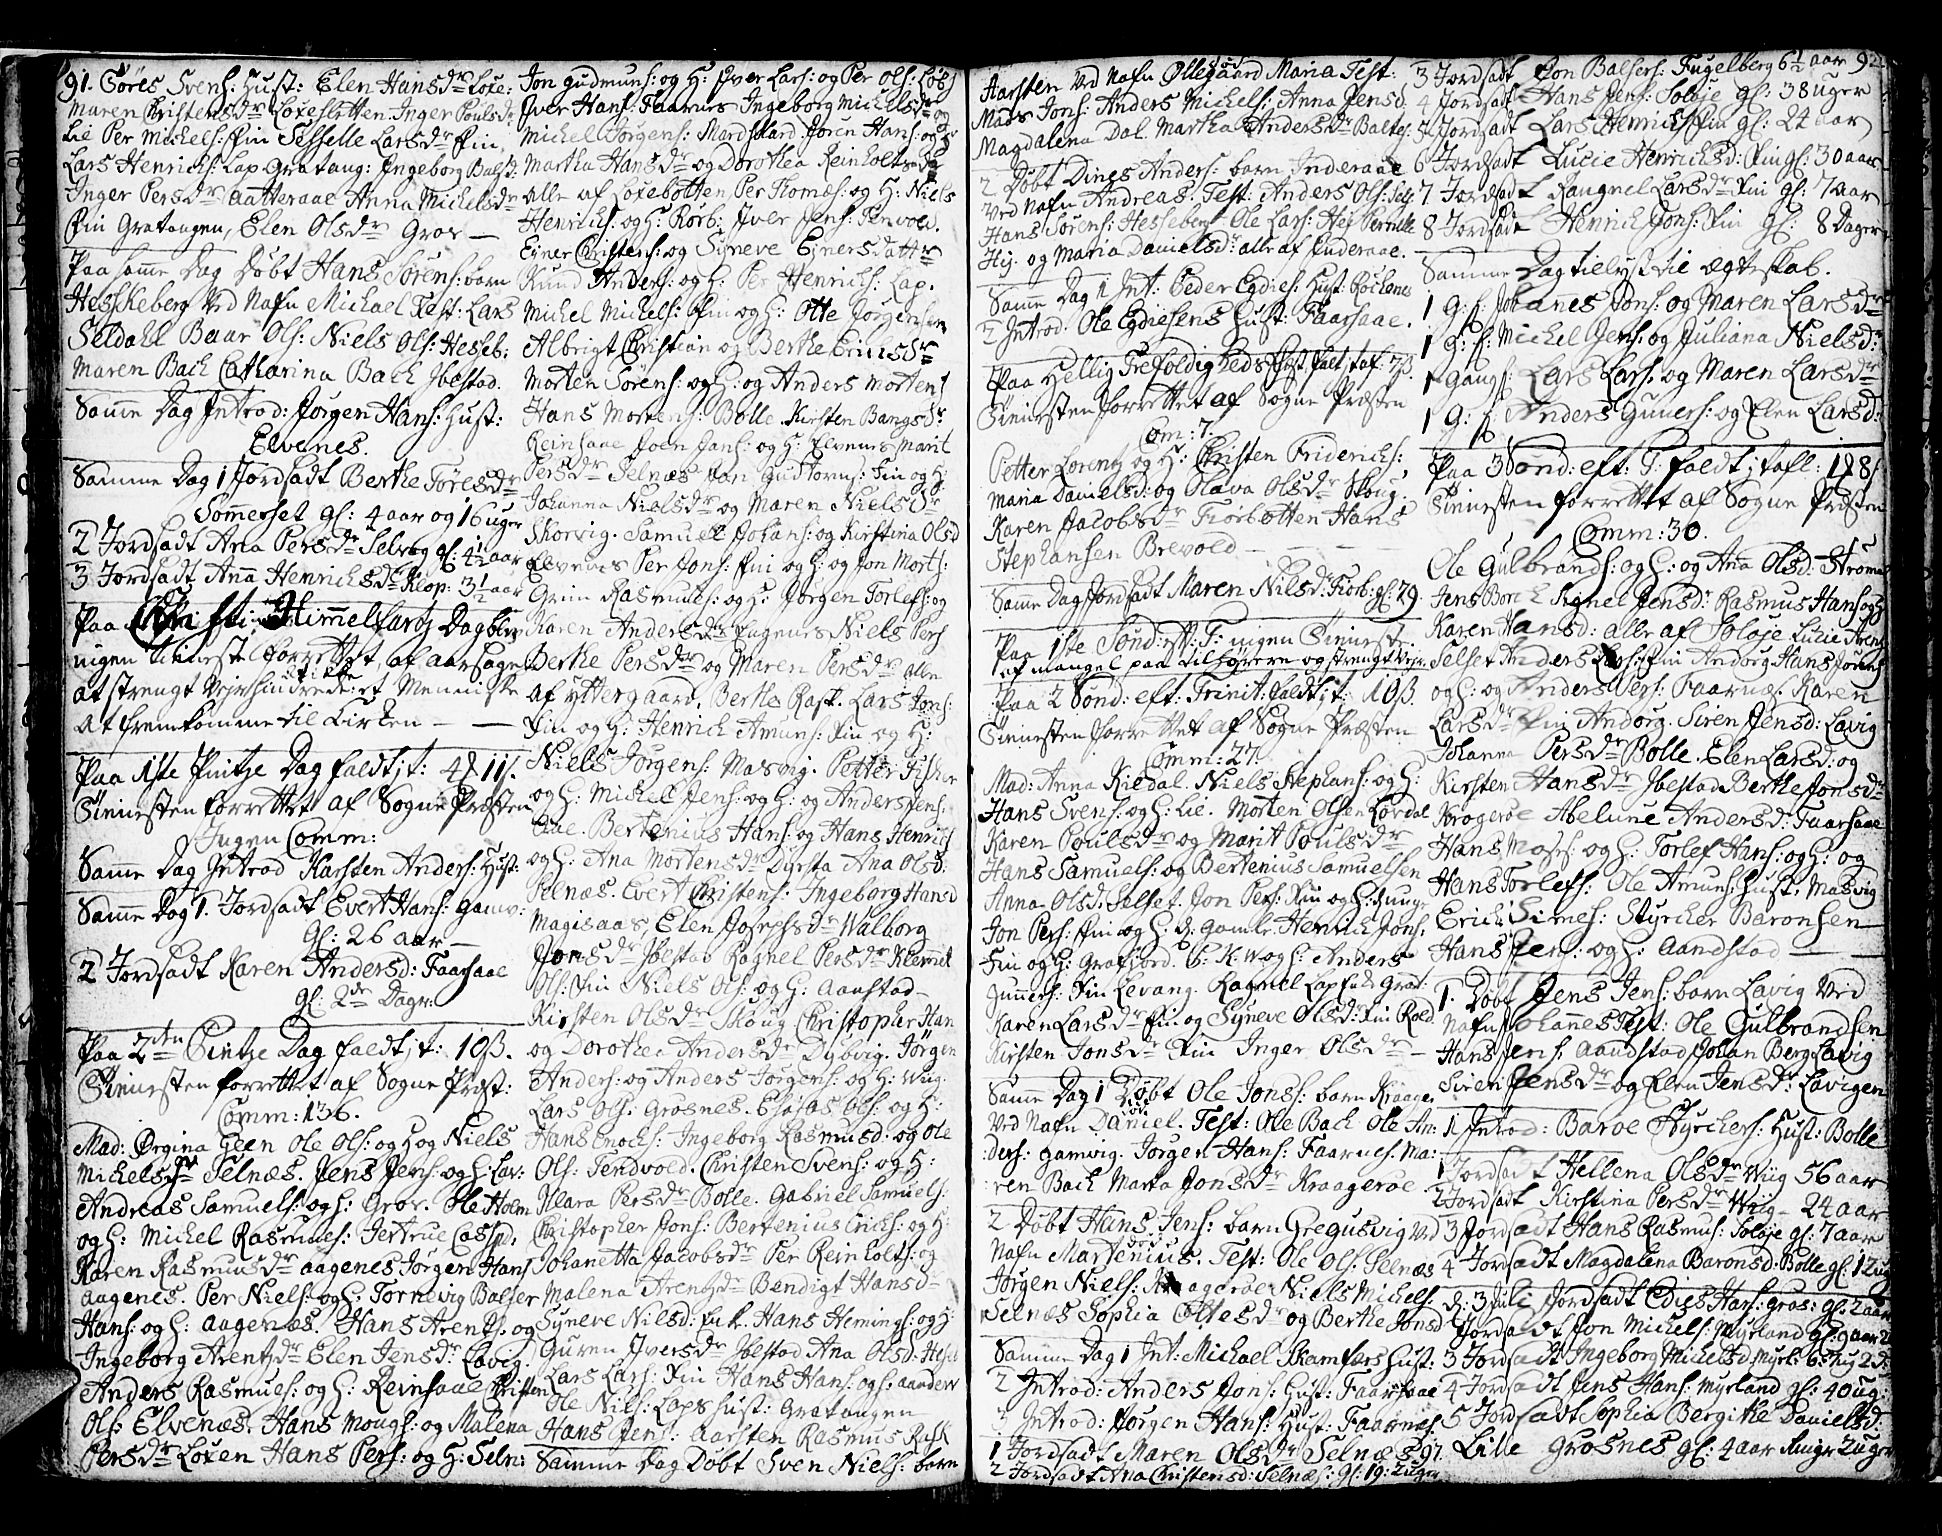 91. Töres Svens: Hust: Elen Hansdr Loxe:
Maren Christensdr Loxesletten. Inger Poulsdr
Lie Per Michels: Fin Sesselle Larsdr Fin,
Lars Henrichs: Lap Gratang: Ingeborg Balsd:
Inger Persdr Aatteraae Anna Michelsdr
Fin Gratangen, Elen Olsdr Grov —
Paa samme Dag Döbt Hans Sörens: barn
Hesskeberg Ved Nafn Michael Test: Lars
Seldahl Baar Ols: Niels Ols: Hesseb:
Maren Bach Catharina Bach Ibestad.
Samme Dag Introd: Jörgen Hans: Hust:
Elvenes.
Samme Dag 1 Jordsadt Berthe Töresdr
Somerset gl: 4 aar og 16 uger
2 Jordsadt Ana Persdr Selvog gl: 4½ aar
3 Jordsadt Anna Henrichsdr Klop: 3½ aar
Paa Christi Himmelfartz Dag blev
ingen tienneste forrettet, af aarsage
at strengt Vejr hindrede et Menniske
at fremkomme til Kirken — —
Paa 1ste Pintze Dag faldt i t: 4
Tiennesten forrettet af Sogne Præsten
Ingen Comm:
Samme Dag Introd Karsten Anders: Hust:
Samme Dag 1. Jordsadt Evert Hans: Gamv:
Gl: 26 aar —
2 Jordsadt Karen Andersd: Faarsaae
gl: 2de Dagr.
Paa 2den Pintze Dag faldt i t: 10 ß.
Tiennesten forrettet af Sogne Præst:
Comm: 136.
Mad: Örgina Geen Ole Ols: og H og Niels
Michelsdr Selnæs. Jens Jens: og H: Lav:
Andreas Samuels: og H: Grov. Ole Holm
og H: Michel Rasmus: Jertrue Casp
Karen Rasmusdr aagenes Jörgen Hans
aagenes. Per Niels: og H: Tornevig Balser
Hans: og H: aagenæs. Hans Arentz. og
Ingeborg Arentzdr Elen Jensdr Lavig.
Anders Rasmus: og H: Reinsaae Christen
Ols: Elvenæs. Hans Mougs: og Malena
Persdr Loxen Hans Pers: og H: Seln:
Jon Gudmuns: og H: Iver Lars: og Per Ols:
Iver Hans: Faarnes Ingeborg Michelsdr
Michel Jörgens: Mardskard Joren Hans: og
Martha Hansdr og Dorothea Reinholtsdr
alle af Loxebotten Per Thomes: og H: Niels
Henrichs: og H: Rörb: Iver Jens: Tenvold.
Einer Christens: og Syneve Einersdattr
Knud Anders: og H: Per Henrichs: Lap.
Michel Michels: Fin og H: Otte Jörgensen
Albrigt Christian og Berthe Erichsdr
Morten Sörens: og H: og Anders Mortens
Hans Mortens: Bolle. Kirsten Bangsdr
Reinsaae Joen Jans: og H: Elvenes Marit
Persdr Selnæs Jon Guttorms: Fin og H:
Johanna Nielsdr og Maren Nielsdr
Skorvig. Samuel Johans: og Kirstina Olsd
Elvenes Per Jons: Fin og H: og Jon Morts:
Grim Rasmus: og H: Jörgen Torlefs: og
Karen Andersdr Fagenes Niels Pers
Berthe Persdr og Maren Persdr alle
af Yttergaard. Berthe Rast. Lars Jons:
Fin og H: Henrich Amuns: Fin og H:
Niels Jörgens: Masvig. Petter Fisker
og H: Michel Jens: og H: og Anders Jens:
Aae. Bertenius Hans: og Hans Henrichs
og H: Ana Mortensdr Dyrsta Ana Olsd:
Selnæs. Evert Christens: Ingeborg Hansd
Magisaas, Elen Josephsdr Walborg
Jonsdr Ibestad Ragnel Persdr Klemmet
Ols: Fin Niels Ols: og H: Aanstad —
Kirsten Olsdr Skoug Christopher Han
og Dorothea Andersdr Dybvig. Jörgen
Anders: og Anders Jörgens: og H: Wiig:
Lars Ols: Grosnes. Esaias Ols: og H:
Hans Enochs: Ingeborg Rasmusd: og Ole
Ols: Tendvold. Christen Svens: og H:
Klara Persdr Bolle. Gabriel Samuels:
Christopher Jons: Bertenius Erichs: og H:
Johanetta Jacobsdr Per Reinholts: og
Malena Arentzdr Bendigt Hansd —
Syneve Nilsd: Enk. Hans Hemings: og H:
Guren Iversdr Ibestad Ana Olsd: Hessel
Lars Lars: Fin Hans Hans: og H: aanderv
Ole Nils: Laps Hust: Gratangen
Hans Jens: Aarsten Rasmus Rask
Samme Dag Döbt Sven Niels: barn
Aarsten Ved Nafn Ollegaard Maria Test:
Mads Jons: Anders Michels: Anna Jensd.
Magdalena Dal. Martha Andersdr Baltes:
2 Döbt Dines Anders: barn Inderaae
Ved Nafn Andreas. Test: Anders Ols: Sels:
Hans Sörens: Hesseberg Ole Lars: Hej Pernille
Hej. og Maria Danielsd: alle af Inderaae.
Samme Dag 1 Int: Peder Egdies: Hust: Röckenes
2 Introd. Ole Egdiesens Hust: Faarsaae.
Paa Hellig Trefoldigheds Fest falt i taf: 7 ß.
Tiennesten forrettet af Sogne Præsten
Com: 7.
Petter Lorentz og H: Christen Friderichs:
Maria Danielsd: og Olava Olsdr Skoug:
Karen Jacobsdr Fiörbotten Hans
Stephansen Brevold — — — —
Samme Dag Jordsadt Maren Nilsd: Fiorb: gl: 79.
Paa 1ste Sönd: eft: T: ingen Tienneste
af mangel paa tilhörere og strengt Vejr.
Paa 2 Sönd: eft: Trinit: faldt i t: 10 ß
Tiennesten forrettet af Sogne Præsten
Comm: 27.
Mad: Anna Kildal. Niels Stephans: og H:
Hans Svens: og H: Lie. Morten Olsen Lördal
Karen Poulsdr og Marit Poulsdr
Hans Samuels: og Bertenius Samuelsen
Anna Olsd. Selset. Jon Pers: Fin og H: d: unge.
Jon Pers: Fin og H: d: gamle. Henrich Jons.
Fin og H: Grafjord. G: K: W og H: Anders
Gunners: Fin Levang. Ragnel Laps Enke Grat:
Karen Larsdr Fin og Syneve Olsd: Fin Roed
Kirsten Jonsdr Fin Inger Olsdr —
Samme Dag 1 Döbt Ole Jons: barn Kraager
Ved Nafn Daniel. Test: Ole Bach Ole An:
:ders: Gamvig. Jörgen Hans: Faarnes. Ma:
:ren Bach Marta Jonsdr Kraageröe.
2 Döbt Hans Jens: barn Gregusvig Ved
Nafn Martenius. Test: Ole Ols: Selnæs
Jörgen Niels: Kraageröe Niels Michels.
Selnæs Sophia Ottesdr og Berthe Jonsd
Samme Dag 1 Int: Michael Skamfærs Hust:
2 Introd: Anders Jons: Hust: Faarsaae
3 Introd: Jörgen Hans: Hust: Faarnes.
1 Jordsadt Maren Olsdr Selnæs 97.
2 Jordsadt Ana Christensd: Selnæs: gl: 19: 2 uger
3 Jordsadt Jon Balsers: Fugelberg 6½ aar 92
4 Jordsadt Hans Jens: Soløje gl: 38 uger
5 Jordsadt Lars Henrichs Fin gl: 24 aar
6 Jordsadt Lucie Henrichsd: Fin gl: 30 aar
7 Jordsadt Rangnel Larsdr Fin gl: 7 aar
8 Jordsadt Henrich Jons: Fin gl: 8 Dager
Samme Dag tilyst die ægteskab.
1 G: f. Johanes Jons: og Maren Larsdr
1 g: f: Michel Jens: og Juliana Nielsd:
1 gang f: Lars Lars: og Maren Larsdr
1 G: f Anders Guners: og Elen Larsd:
Paa 3 Sönd: eft: T: faldt i tafl:
Tiennesten forrettet af Sogne Præsten
Comm: 30.
Ole Gulbrands: og H: og Ana Olsd: Strømm
Jens Borch Signel Jensd: Rasmus Hans og H
Karen Hansd: alle af Soløje Licie
Selset Anders Lars: Fin Andorg Hans Jörens
og H: og Anders Pers: Faarnæs. Karen
Larsdr Fin Andorg. Siren Jensd: Lavig
Johanna Persdr Bolle. Elen Larsd: og
Kirsten Hansdr Ibestad Berthe Jonsdr
Krogeröe Abelune Andersd: Faarsaae
Hans Moses: og H: Torlef Hans: og H: og
Hans Torlefs: Ole Amuns: Hust: Masvig
Erich Simes: Styrcker Baronsen
Hans Jens: og H: Aandstad —
1. Döbt Jens Jens: barn Lavig Ved
Nafn Johannes Test: Ole Gulbrandsen
Hans Jens: Aandstad Johan Berg Lavig
Siren Jensdr og Elen Jensd: Lavigen
1 Introd: Baroe Styrckers: Hust: Bolle
1 Jordsadt Hellena Olsdr Wiig 56 aar
2 Jordsadt Kirstina Persdr Wiig — 24 aar
3 Jordsadt Hans Rasmus: Soløje gl: 7 aar
4 Jordsadt Magdalena Baronsd: Bolle gl: 12 ug
d: 3 Juli Jordsadt Edies Hans: Gros: gl: 2 aar
Jordsadt Jon Michels: Myrland gl: 9 aar
3 Jordsadt Ingeborg Michelsd Myrl: 6: ug 2 d
4 Jordsadt Jens Hans: Myrland gl: 40 ug:
5 Jordsadt Sophia Bergitke Danielsd:
Lille Grosnes gl: 4 aar 2 uger